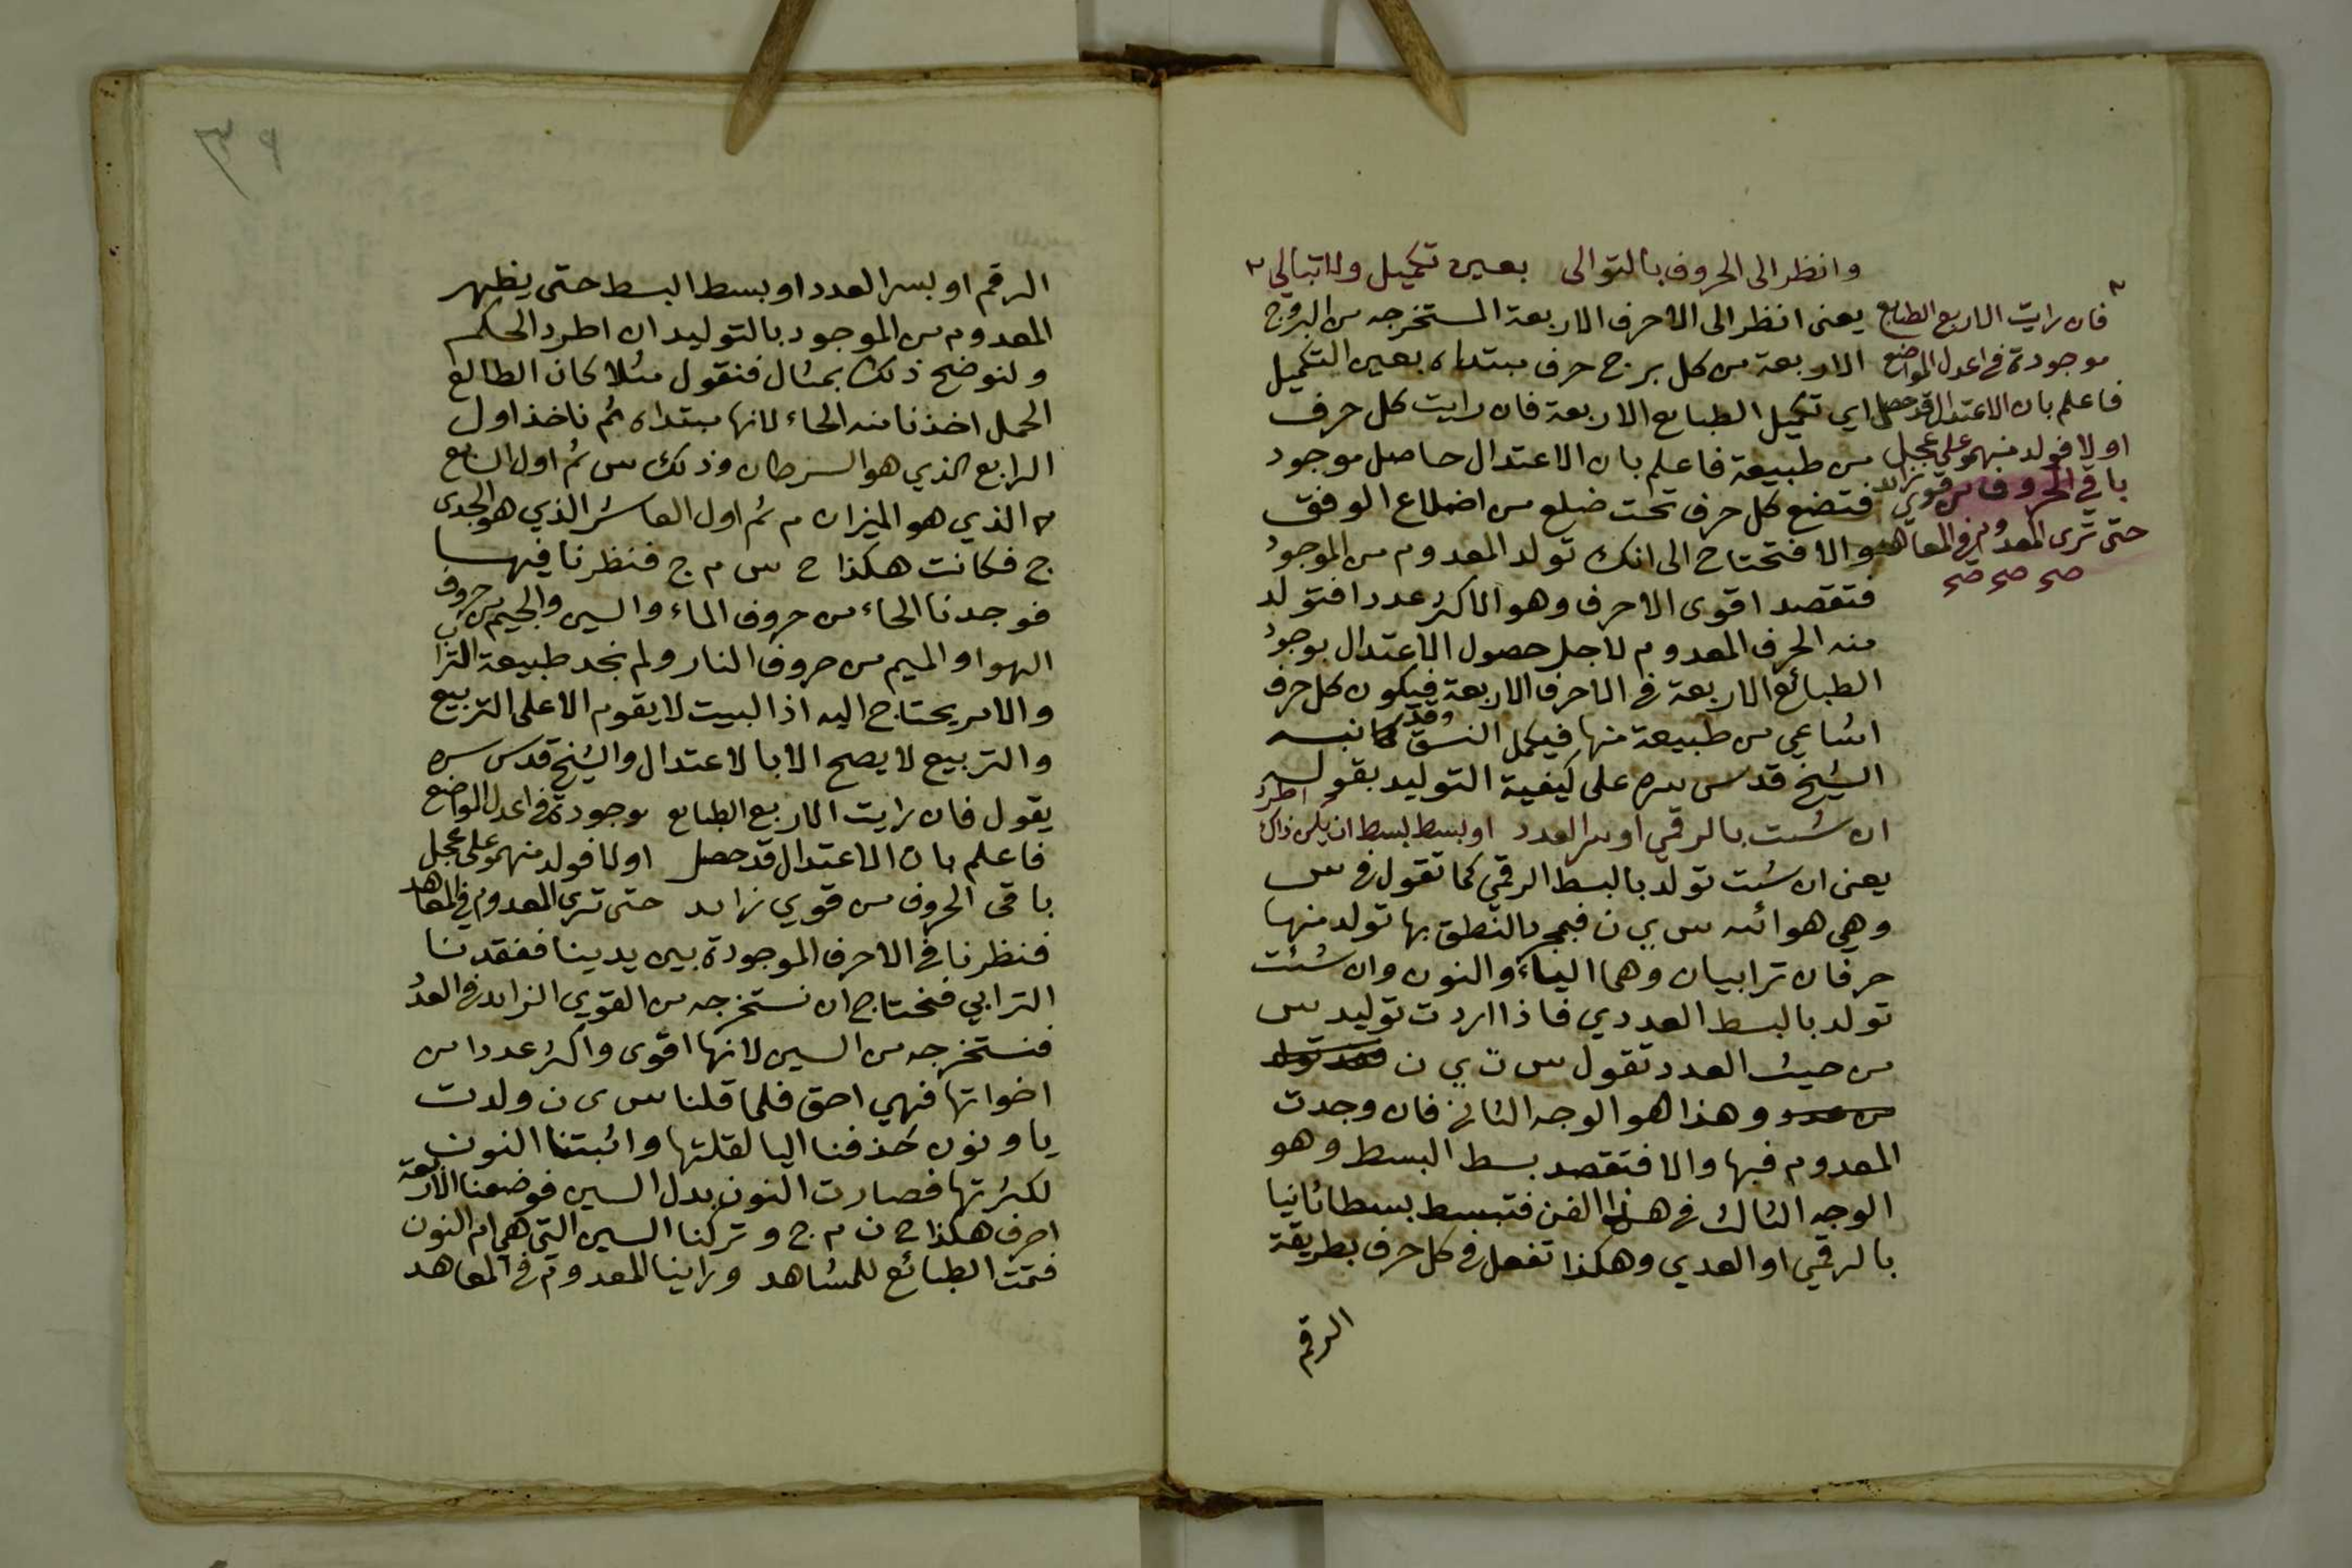 وانظر الى الحروف بالتوالى بعين تكميل ولا تبالي
يعنى انظر الى الاحرف الاربعة المستخرجه من البروج
الاربعة من كل برج حرف مبتداه بعين التكميل
اي تكميل الطبايع الاربعة فان رايت كل حرف
من طبيعة فاعلم بان الاعتدال حاصل موجود
فتضع كل حرف تحت ضلع من اضلاع الوفق
والا فتحتاج الى انك تولد المعدوم من الموجود
فتقصد اقوى الاحرف وهو الاكثر عددا فتولد
منه الحرف المعدوم لاجل حصول الاعتدال بوجود
الطبائع الاربعة في الاحرف الاربعة فيكون كل حرف
من طبيعة منها فيكمل النسق وقد نبه
الشيخ قدس سره على كيفية التوليد بقوله
ان شئت بالرقمي او سر العدد او بسط بسط ان يكن ذاك اطرد
يعنى ان شئت تولد بالبسط الرقمي كما تقول في س
وهي هوائيه س ي ن فبمجرد النطق بها تولد منها
حرفان ترابيان وهما الياء والنون وان شئت
تولد بالبسط العددي فاذا اردت توليد س
من حيث العدد تقول س ت ي ن
وهذا هو الوجه الثانى فان وجدت
المعدوم فبها والا فتقصد بسط البسط وهو
الوجه الثالث في هذا الفن فتبسط بسطا ثانيا
بالرقمي او العددي وهكذا تفعل في كل حرف بطريقة
الرقم
فان رايت الاربع الطبايع
موجودة في اعدل المواضع
فاعلم بان الاعتدال قد حصل
او لا فولد منهمو على عجل
باقي الحروف من قوي زايد
حتى ترى المعدوم في المعاهد
صح صح صح
٣٩
الرقم او بسر العدد او بسط البسط حتى يظهر
المعدوم من الموجود بالتوليد ان اطرد الحكم
ولنوضح ذلك بمثال فنقول مثلا كان الطالع
الحمل اخذنا منه الحاء لانها مبتداه ثم ناخذ اول
الرابع الذي هو السرطان وذلك س ثم اول السابع
الذي هو الميزان م ثم اول العاشر الذي هو الجدى
ج فكانت هكذا ح س م ج فنظرنا فيها
فوجدنا الحاء من حروف الماء والسين والجيم من حروف
الهوا والميم من حروف النار ولم نجد طبيعة التراب
والامر يحتاج اليه اذ البيت لا يقوم الا على التربيع
والتربيع لا يصح الا بالاعتدال والشيخ قدس سره
يقول فان رايت الاربع الطبايع موجودة في اعدل المواضع
فاعلم بان الاعتدال قد حصل او لا فولد منهمو على عجل
باقى الحروف من قوي زايد حتى ترى المعدوم في المعاهد
فنظرنا في الاحرف الموجودة بين يدينا ففقدنا
الترابي فنحتاج ان نستخرجه من القوي الزايد في العدد
فنستخرجه من السين لانها اقوى واكثر عددا من
اخواتها فهي احق فلما قلنا س ى ن ولدت
يا ونون فحذفنا اليا لقلتها واثبتنا النون
لكثرتها فصارت النون بدل السين فوضعنا الاربعة
احرف هكذا ح ن م ج وتركنا السين التي هي ام النون
فتمت الطبائع للمشاهد وراينا المعدوم في المعاهد